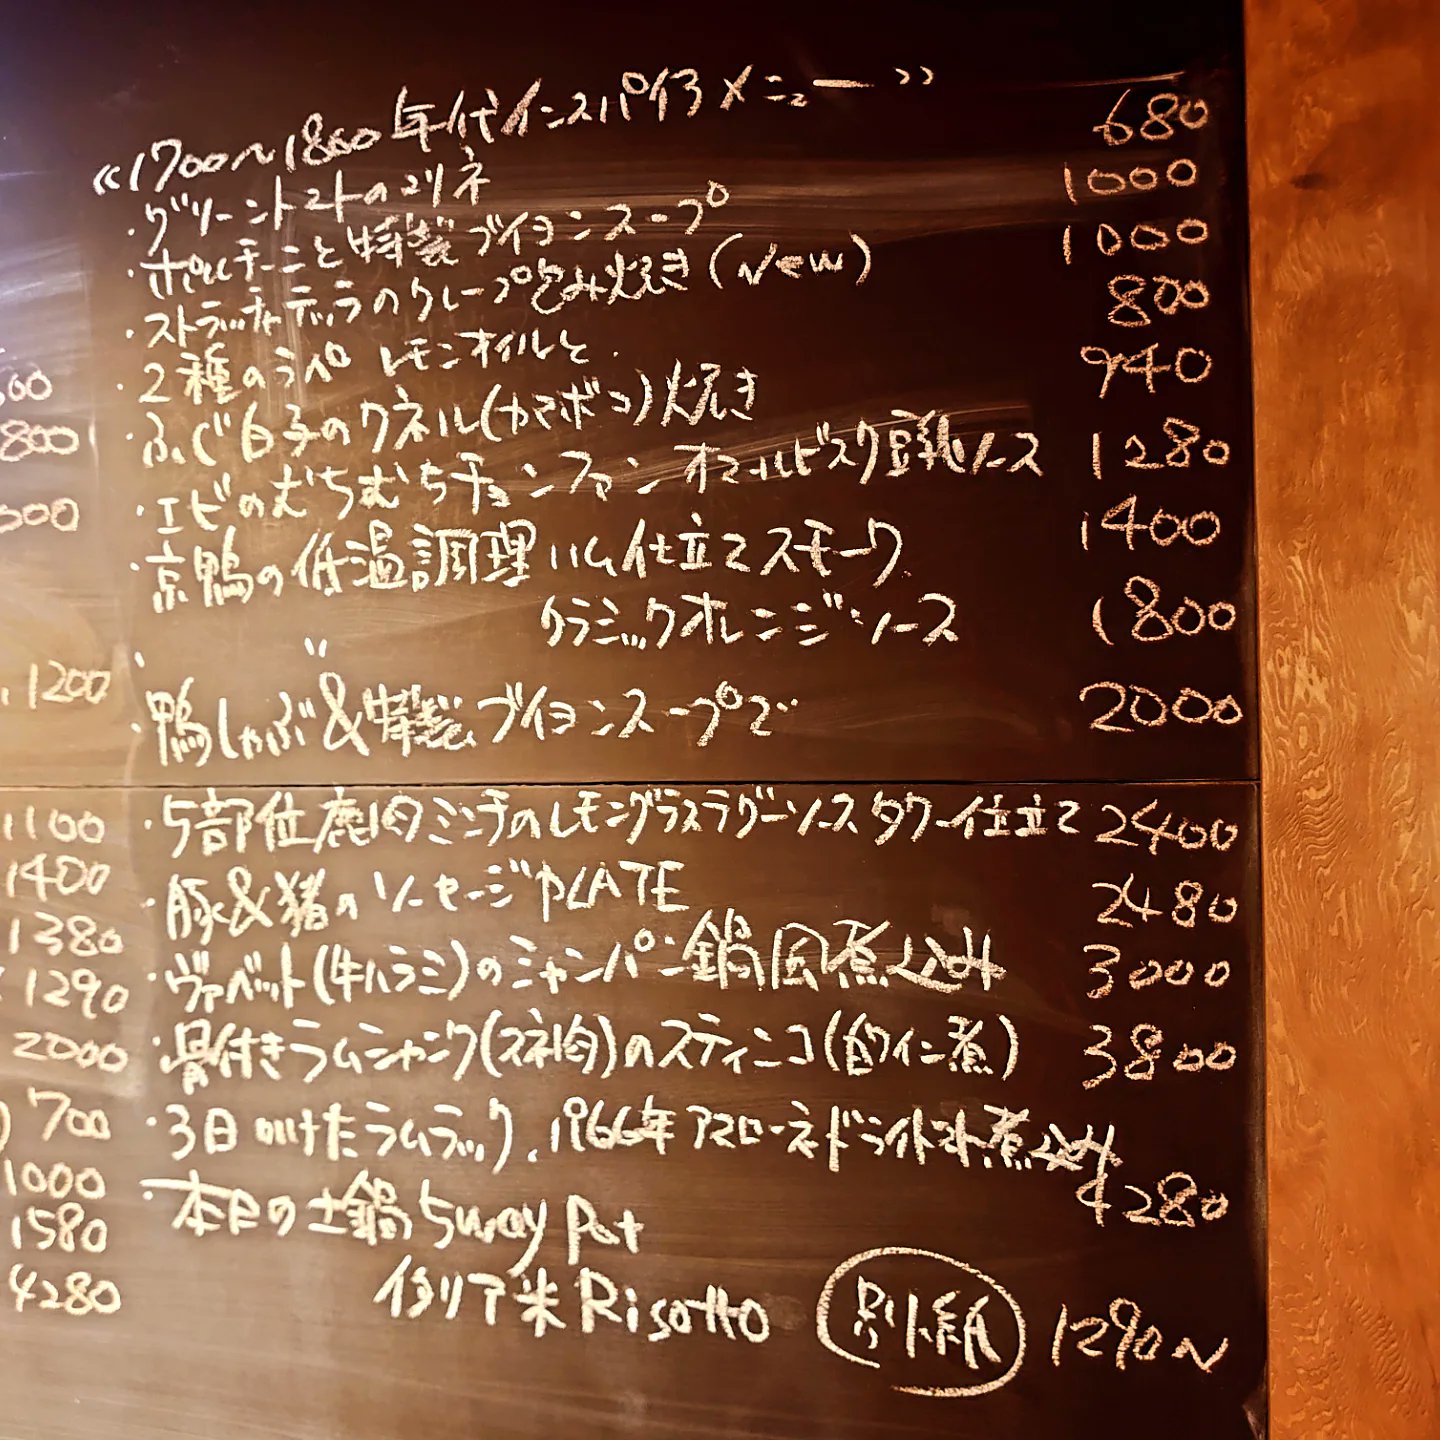 «1700~1800年代インスパイアメニュー»
・グリーントマトのマリネ 680
・ポルチーニと特製ブイヨンスープ 1000
・ストラッチャテッラのクレープ包み焼き(New) 1000
・2種のラペ レモンオイルと 800
・ふぐ白子のクネル(カマボコ)焼き 940
・エビのむちむちチョンファン オマールビスク豆乳ソース 1280
・京鴨の低温調理ハム仕立てスモーク 1400
〃 クラシックオレンジソース 1800
・鴨しゃぶ&特製ブイヨンスープで 2000
・5部位鹿肉ミンチのレモングラスラグーソース タワー仕立て 2400
・豚&猪のソーセージPLATE 2480
・ヴァベット(牛ハラミ)のシャンパン鍋風煮込み 3000
・骨付きラムシャンク(スネ肉)のスティンコ(白ワイン煮) 3800
・3日かけたラムラック、1966年マスローネドライトマト煮込み
4280
・本日の土鍋 5way Pot
イタリア米 Risotto 別紙 1290~
800
1200
1100
1400
1380
1290
2000
700
1000
1580
4280